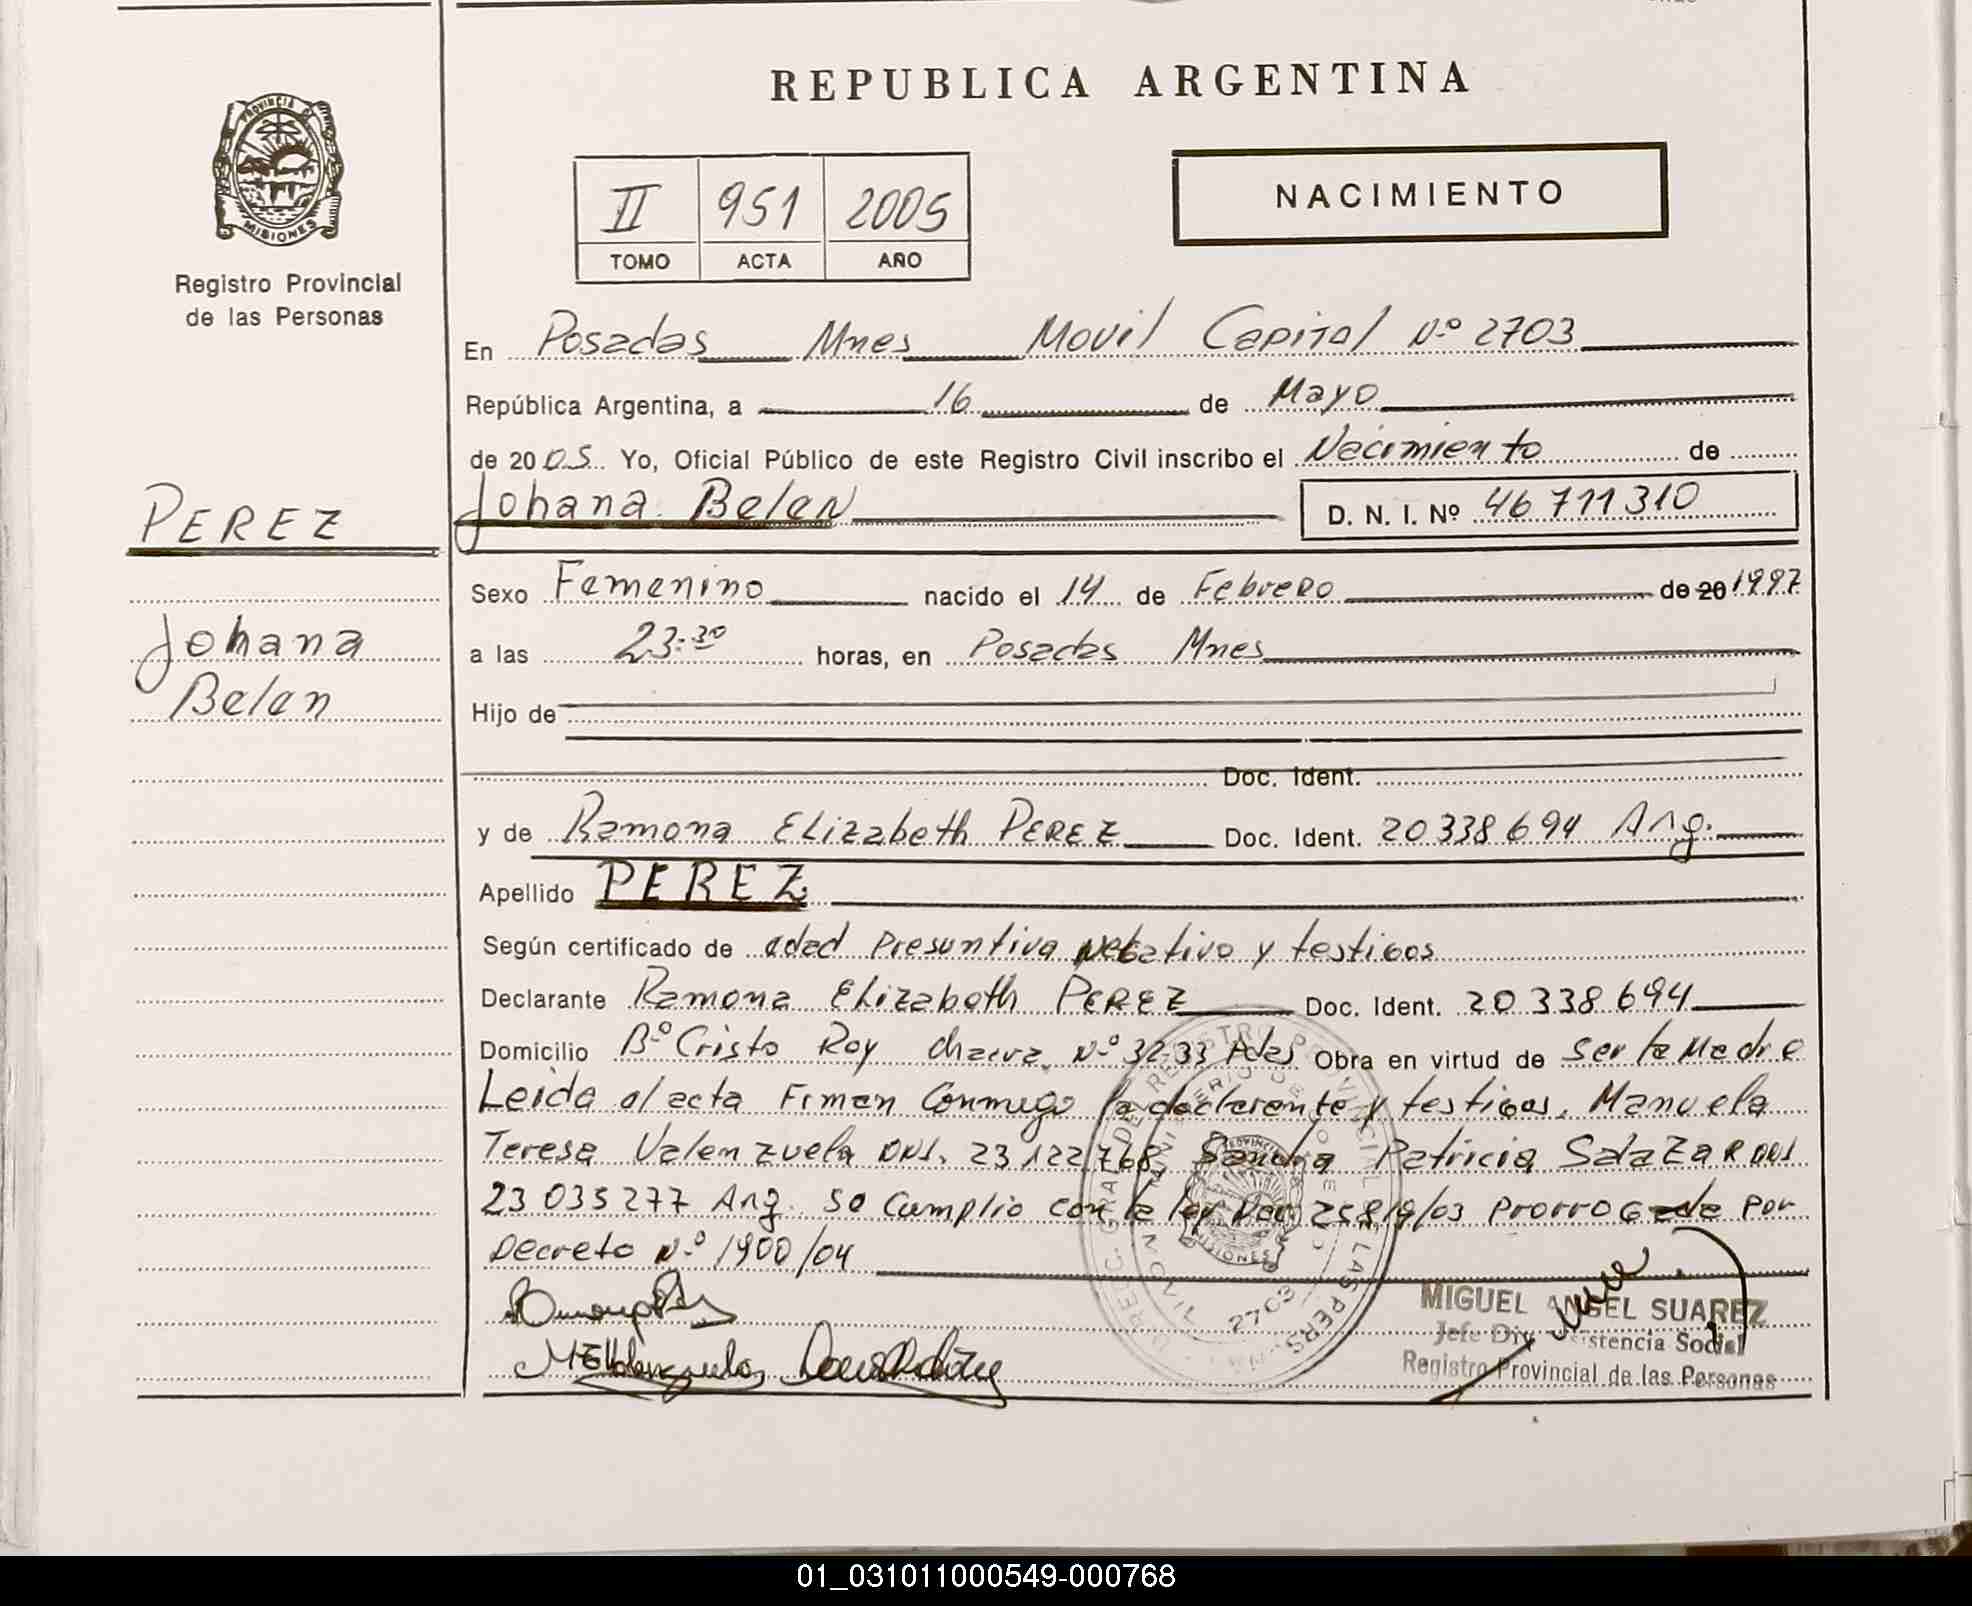 REPUBLICA ARGENTINA
PROVINCIA DE MISIONES
Registro Provincial
de las Personas
II 951 2005
TOMO ACTA AÑO
NACIMIENTO
En Posadas Mnes Movil Capital Nº 2703
República Argentina, a 16 de Mayo
de 2005 Yo, Oficial Público de este Registro Civil inscribo el Nacimiento de
PEREZ
Johana Belen D. N. I. Nº 46 711 310
Johana
Belen
Sexo Femenino nacido el 14 de Febrero de 20 1997
a las 23:30 horas, en Posadas Mnes
Hijo de
Doc. Ident.
y de Ramona Elizabeth PEREZ Doc. Ident. 20 338 694 Arg.
Apellido PEREZ
Según certificado de edad presuntiva negativo y testigos
Declarante Ramona Elizabeth PEREZ Doc. Ident. 20 338 694
Domicilio Bº Cristo Rey chacra Nº 32-33 Pdas Obra en virtud de ser la Madre
Leida el acta Firman Conmigo la declarante y testigos, Manuela
Teresa Valenzuela DNI. 23 122 768 Sandra Patricia Salazar DNI
23 035 277 Arg. se Cumplio con la ley 25819/03 prorrogada por
Decreto Nº 1900/04
2703
MIGUEL ANGEL SUAREZ
Jefe Div. Asistencia Social
Registro Provincial de las Personas
01_031011000549-000768